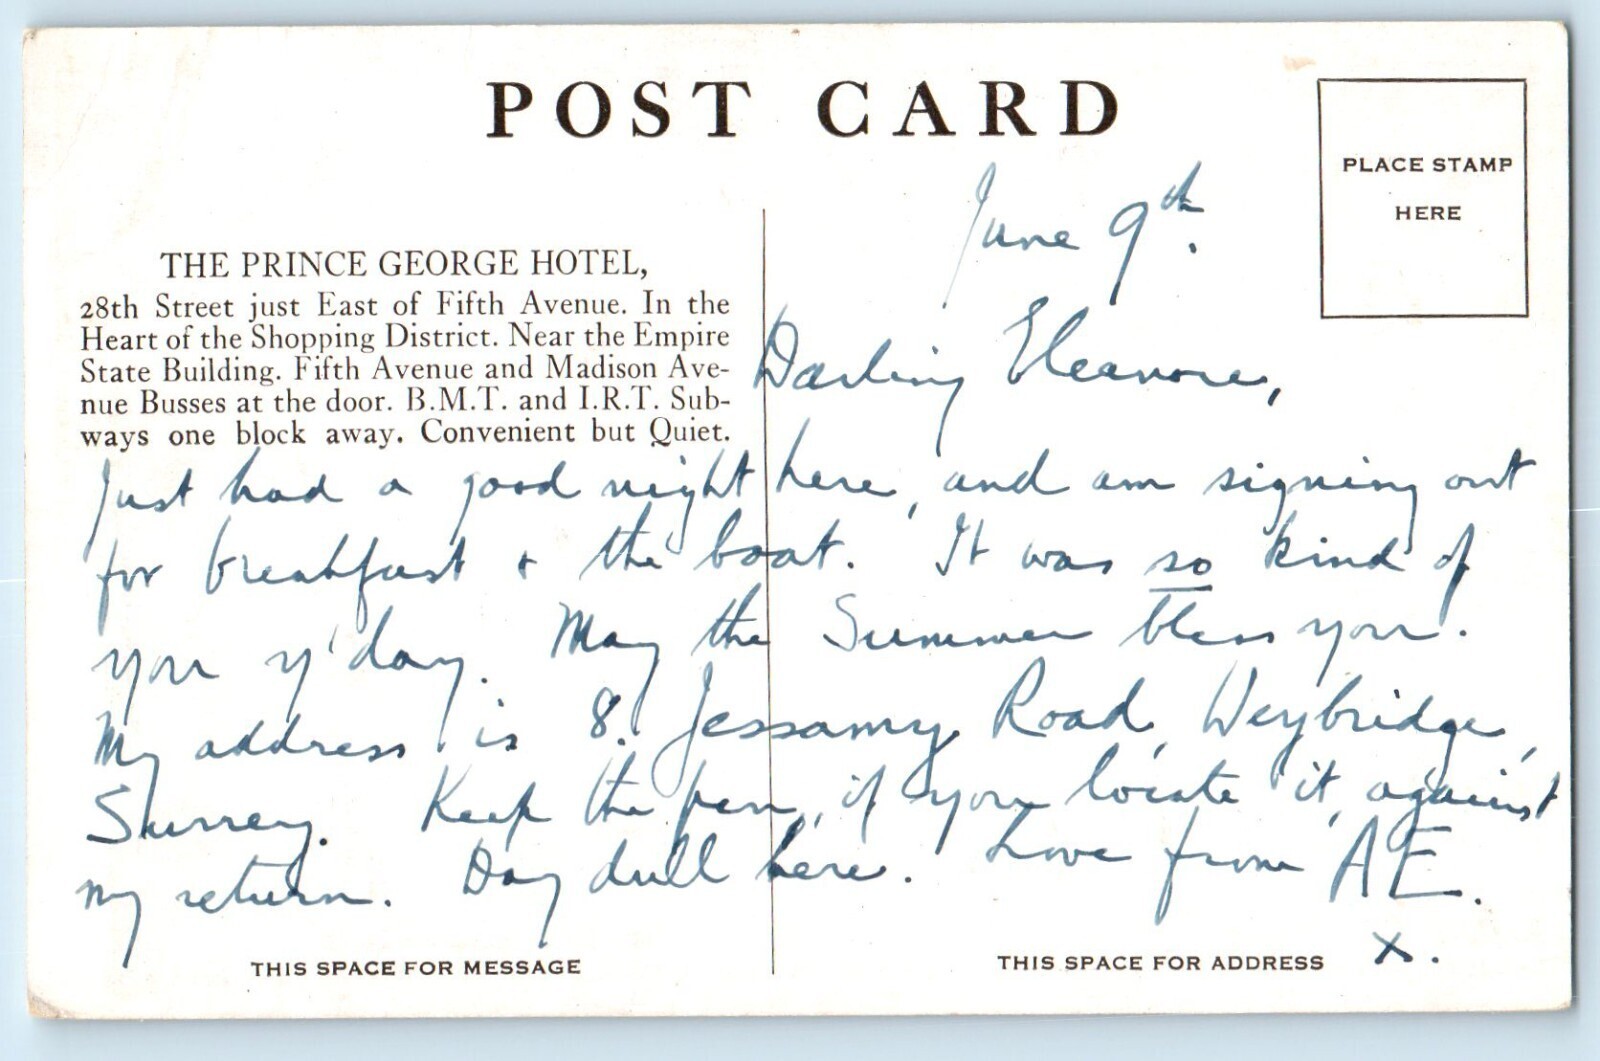 POST CARD
PLACE STAMP
HERE
THE PRINCE GEORGE HOTEL,
28th Street just East of Fifth Avenue. In the
Heart of the Shopping District. Near the Empire
State Building. Fifth Avenue and Madison Ave-
nue Busses at the door. B.M.T. and I.R.T. Sub-
ways one block away. Convenient but Quiet.
June 9th.
Darling Eleanore,
Just had a good night here, and am signing out
for breakfast + the boat. It was so kind of
you y'day. May the Summer bless you.
My address is 8. Jessamy Road, Weybridge,
Surrey. Keep the pen, if you locate it, against
my return. Day dull here. Love from AE.
x.
THIS SPACE FOR MESSAGE
THIS SPACE FOR ADDRESS